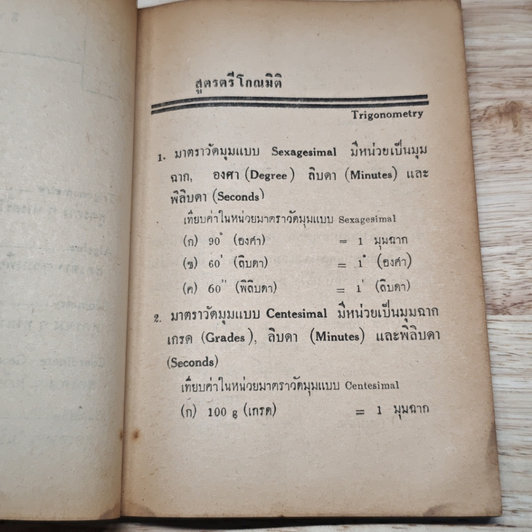 สูตรตรีโกณมิติ
Trigonometry
1. มาตราวัดมุมแบบ Sexagesimal มีหน่วยเป็นมุม
ฉาก, องศา (Degree) ลิบดา (Minutes) และ
พิลิบดา (Seconds)
เทียบค่าในหน่วยมาตราวัดมุมแบบ Sexagesimal
(ก) 90° (องศา) = 1 มุมฉาก
(ข) 60′ (ลิบดา) = 1° (องศา)
(ค) 60″ (พิลิบดา) = 1′ (ลิบดา)
2. มาตราวัดมุมแบบ Centesimal มีหน่วยเป็นมุมฉาก
เกรด (Grades), ลิบดา (Minutes) และพิลิบดา
(Seconds)
เทียบค่าในหน่วยมาตราวัดมุมแบบ Centesimal
(ก) 100 g (เกรด) = 1 มุมฉาก